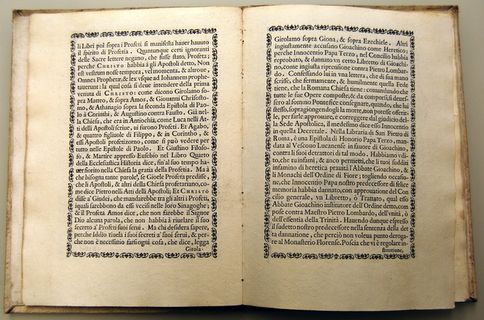 li Libri poi sopra i Profeti si manifesta hauer hauuto
il spirito di Profetia. Quantunque certi ignoranti
delle Sacre lettere negano, che fusse stato, Profeta;
perche CHRISTO habbia à gli Apostoli detto, Non
est vestrum nosse tempora, vel momenta, & altroue,
Omnes Prophetæ, & lex vsque ad Iohannem prophe-
tauerunt: la qual cosa si deue intendere della prima
venuta di CHRISTO: come dicono Girolamo so-
pra Matteo, & sopra Amos, & Giouanni Chrisosto-
mo, & Athanagio sopra la seconda Epistola di Pao-
lo à Corinthi, & Augustino contra Fausto. Già nel-
la Chiesa, che era in Antiochia, come Luca nelli At-
ti delli Apostoli scriue, vi furono Profeti. Et Agabo,
& quattro figliuole di Filippo, & in Corintho, & in
altri luochi profetizorno, come si può vedere per
tutto nelle Epistole di Paolo. Et Giustino Filoso-
fo, & Martire appresso Eusebio nel Libro Quarto
della Ecclesiastica Historia dice, fin al suo tempo ha-
uer fiorito nella Chiesa la gratia della Profetia. Ma
che bisogna tante parole, se Gioele Profeta predisse,
che li Apostoli, & altri della Chiesa profetariano, co-
me dice Pietro nelli Atti delli Apostoli; Et CHRISTO
disse a' Giudei, che mandarebbe tra gli altri i Profeti,
quali sarebbono da essi vccisi nelle loro Sinagoghe;
& il Profeta Amos dice, che non farebbe il Signore
Dio alcuna parola, che non habbia à riuelare il suo
secreto a' Profeti suoi serui. Ma chi desidera sapere,
perche Iddio riuela i suoi secreti a' suoi serui, & per-
che non è necessario farsi ogni cosa, che dice, legga
Girola-
Girolamo sopra Giona, & sopra Ezechiele. Altri
ingiustamente accusano Gioachino come Heretico;
perche Innocentio Papa Terzo, nel Concilio habbia
reprobato, & dannato vn certo Libretto di Gioachi-
no, come ingiusta riprensione contra Pietro Lombar-
do. Confessando lui in vna lettera, che di sua mano
scrisse, che fermamente, & humilmente quella Fede
tiene, che la Romana Chiesa tiene: comandando che
tutte le sue Opere composte, & da comporsi si deb-
bano al sommo Pontefice consegnare, quando, che lui
stesso, sopragiongendogli la morte, non potesse offerir-
le, per farle approuare, & correggere dal giuditio del-
la Sede Apostolica, il medesimo dice esso Innocentio
in quella Decretale. Nella Libraria di San Pietro di
Roma, è vna Epistola di Honorio Papa Terzo, man-
data al Vescouo Lucanense in fauore di Gioachino,
contra li suoi detrattori di tal modo. Habbiamo vdi-
to, che tu infami, & anco permetti, che li tuoi sudditi
infamino di heretica prauità l'Abbate Gioachino, &
li Monachi dell'Ordine di Fiore; togliendo occasio-
ne, che Innocentio Papa nostro predecessore di felice
memoria habbia dannato, con approuatione del Con-
cilio generale, vn Libretto, ò Trattato, qual detto
Abbate Gioachino institutore dell'Ordine detto, com-
pose contra Mastro Pietro Lombardo, dell'vnità, ò
vero essentia della Trinità. Hauendo dunque espresso
il sudetto nostro predecessore nella sentenza della det-
ta dannatione, che perciò non voleua punto deroga-
re al Monasterio Florense. Poscia che vi è regolare in-
stitutione,